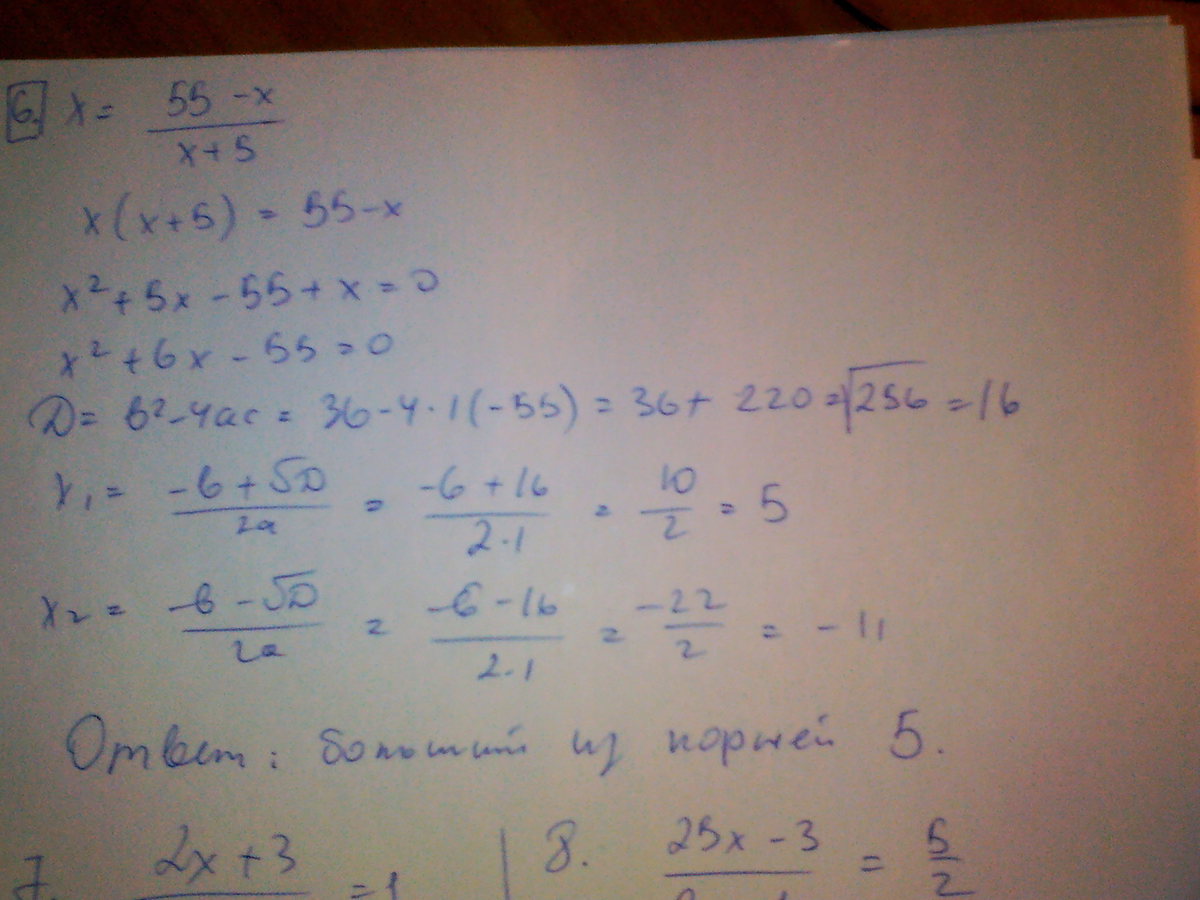 6. x = (55 - x)/(x + 5)
x(x+5) = 55-x
x² + 5x - 55 + x = 0
x² + 6x - 55 = 0
D = b² - 4ac = 36 - 4 · 1(-55) = 36 + 220 = √256 = 16
x₁ = (-b + √D)/2a = (-6 + 16)/(2·1) = 10/2 = 5
x₂ = (-b - √D)/2a = (-6 - 16)/(2·1) = -22/2 = -11
Ответ: больший из корней 5.
7. 2x + 3 = 1 | 8. 25x - 3 = 5/2